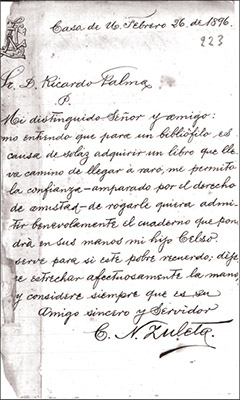 Casa de U. Febrero 26 de 1896.
223
Sr. D. Ricardo Palma
P.
Mi distinguido Señor y amigo:
mo entiendo que para un bibliófilo es
causa de solaz adquirir un libro que lle
va camino de llegar á raro, me permito
la confianza–amparado por el derecho
de amistad–de rogarle quiera admi-
tir benevolamente el cuaderno que pon
drá en sus manos mi hijo Celso.
serve para si este pobre recuerdo; déje
se estrechar afectuosamente la mano,
y considere siempre que es su
amigo sincero y Servidor
C. N. Zuleta.